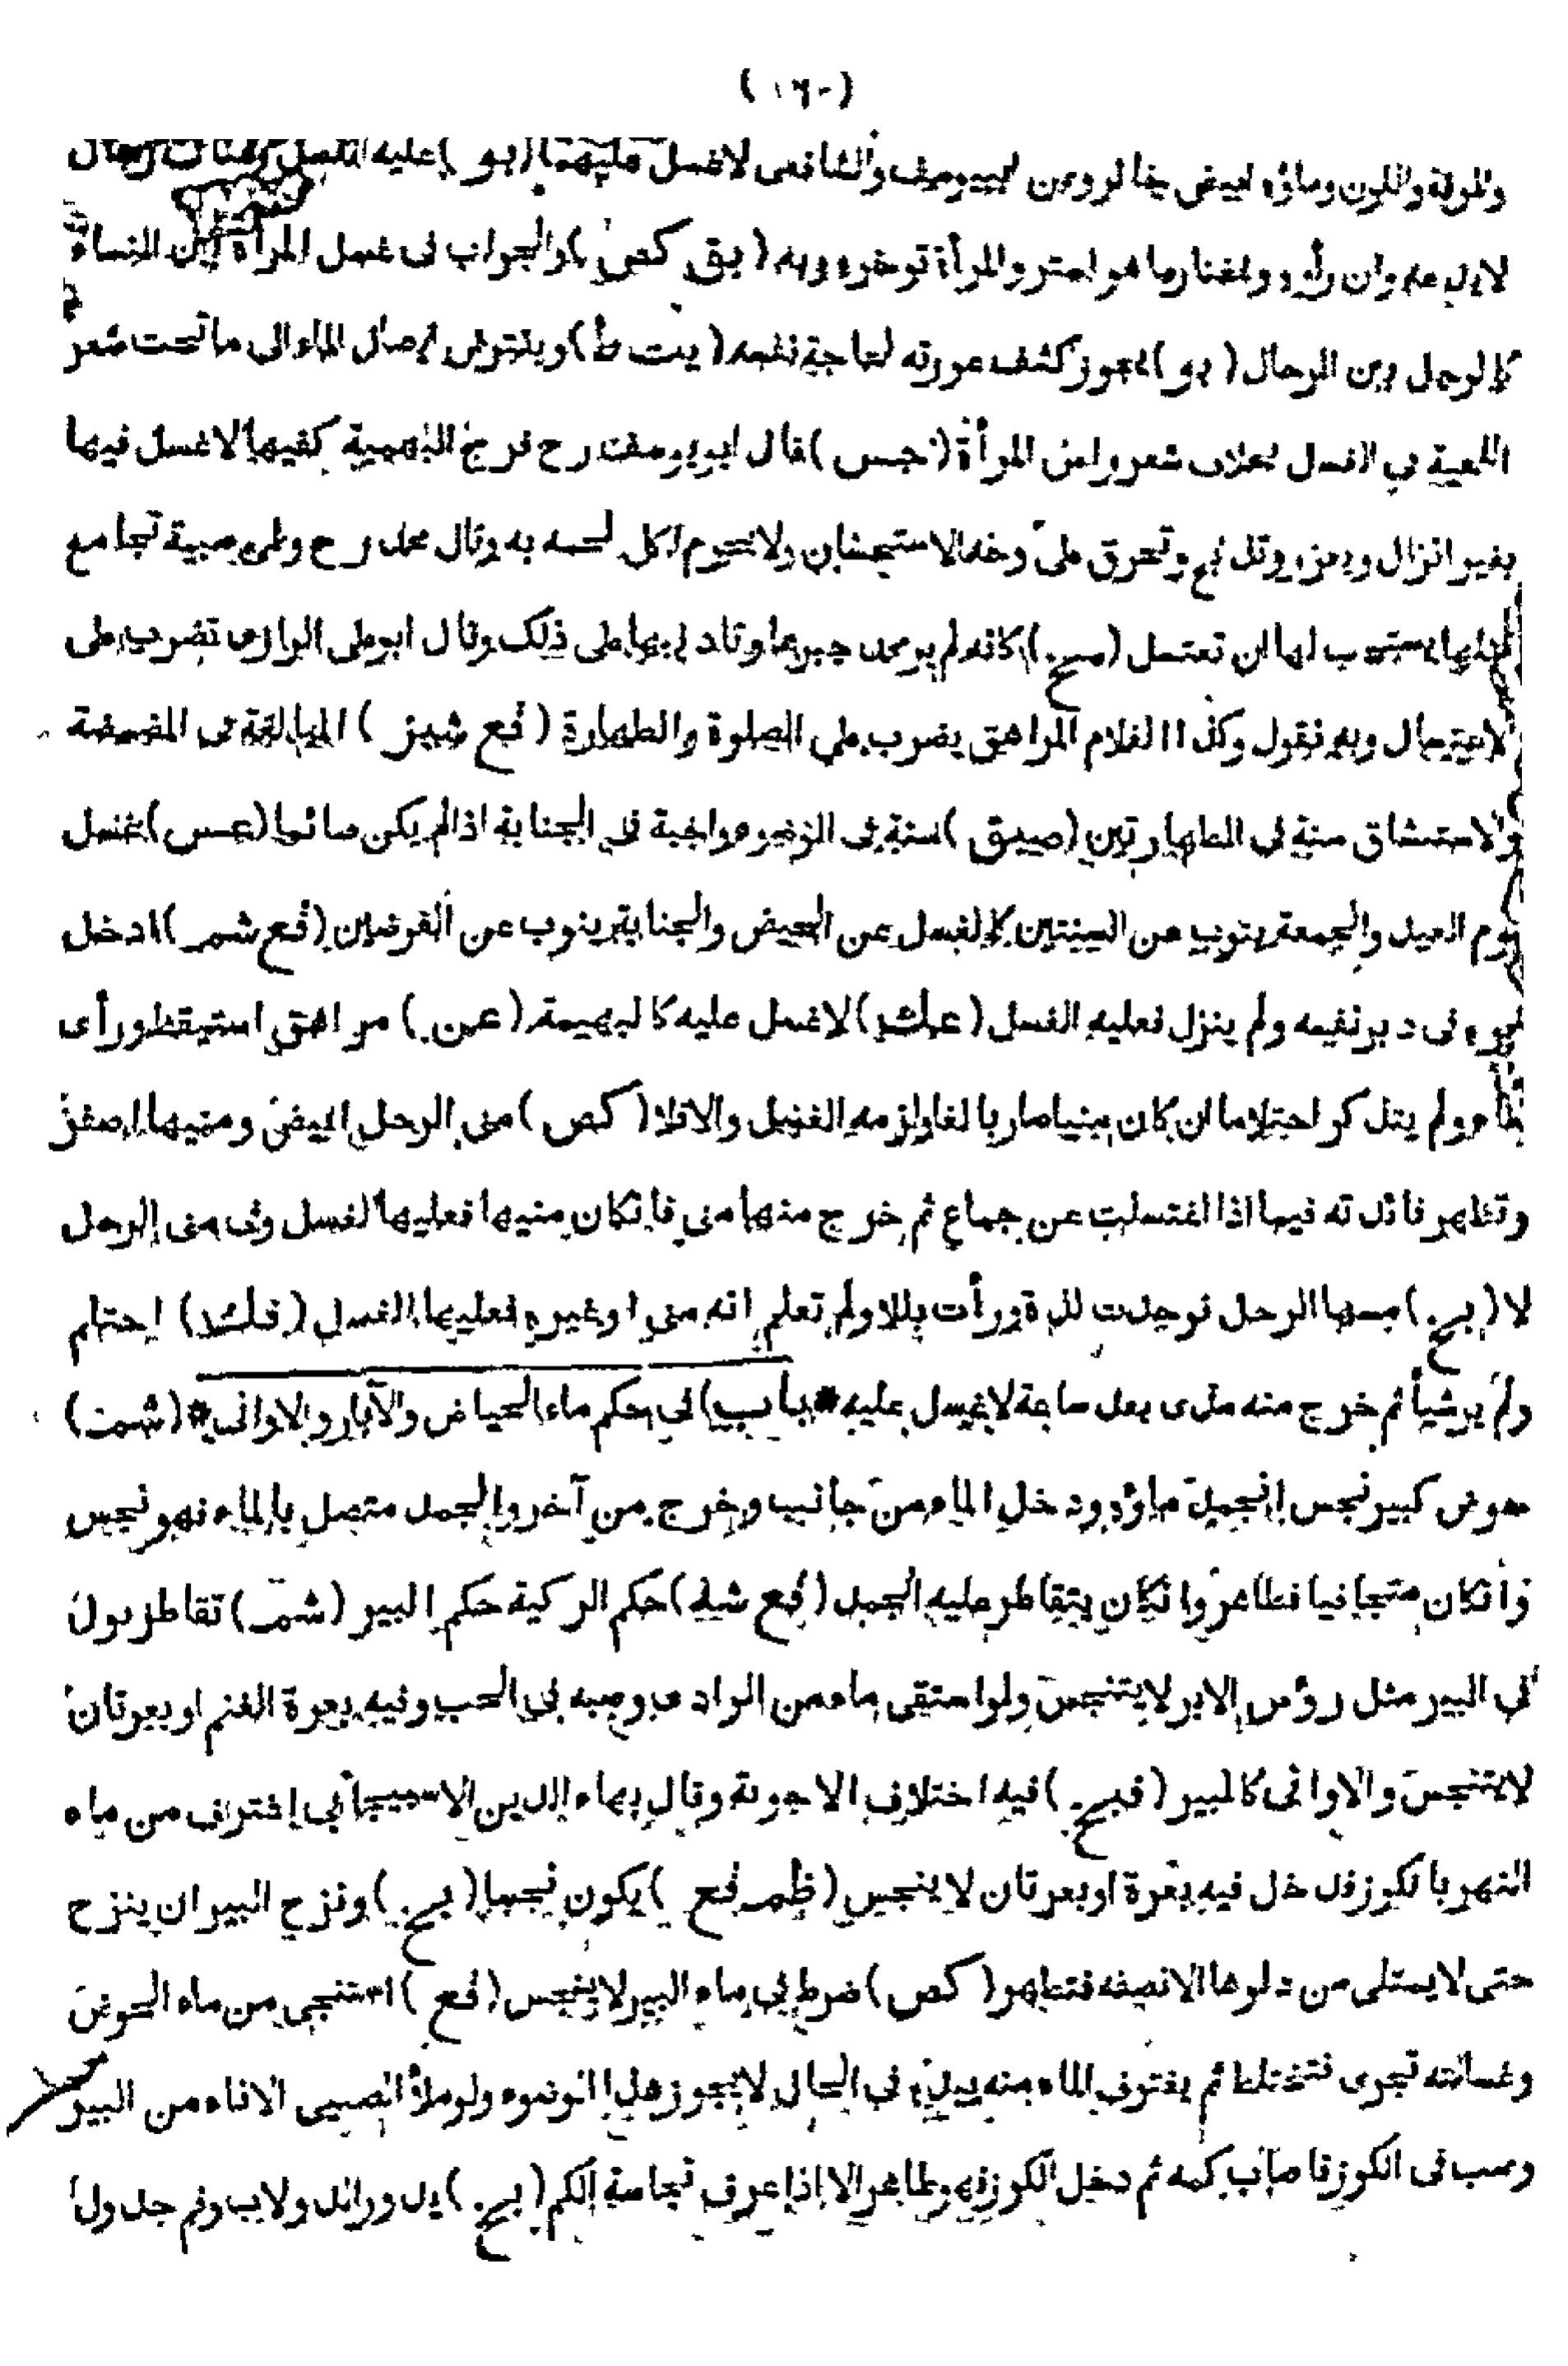 (١٦٠)
والمرقة واللون وماؤه ابيض خالر وعن ابيوسف والشافعى لا غسل عليهما (بو) عليه الغسل وهناك رجال
لا يدعه وان رأوه ويختار ما هو استر والمرأة توخره وبه (بق كص) والجواب فى غسل المرأة بين النساء
كالرجل بين الرجال (بو) يجوز كشف عورته لحاجة نفسه (يت ط) ويفترض ايصال الماء الى ما تحت شعر
اللحية فى الغسل بخلاف شعر رأس المرأة (جس) قال ابويوسف رح فرج البهيمة كفيها لا غسل فيها
بغير انزال ويعزر وتذبح وتحرق على وجه الاستحسان ولا تحرم اكل لحمه به وقال محمد رح وطئ صبية تجامع
مثلها يستحب لها ان تغتسل (صح) كانه لم ير محمد جبرها وتاديبها على ذلك وقال ابو على الرازى تضرب على
الاغتسال وبه نقول وكذا الغلام المراهق يضرب على الصلوة والطهارة (فع شيز) المبالغة فى المضمضة
والاستنشاق سنة فى الطهارتين (صيق) سنة فى الوضوء واجبة فى الجنابة اذا لم يكن صائما (عس) غسل
يوم العيد والجمعة ينوب عن السنتين كالغسل عن الحيض والجنابة ينوب عن الفرضين (فع شمر) ادخل
ايره فى دبر نفسه ولم ينزل فعليه الغسل (عك) لا غسل عليه كالبهيمة (عن) مراهق استيقظ ورأى
ماء ولم يتذكر احتلاما ان كان منيا صار بالغا ولزمه الغسل والا فلا (كص) منى الرجل ابيض ومنيها اصفر
وتظهر فائدته فيما اذا اغتسلت عن جماع ثم خرج منها منى فان كان منيها فعليها الغسل وفى منى الرجل
لا (بح) مسها الرجل فوجدت لذة ورأت بللا ولم تعلم انه منى او غيره فعليها الغسل (فك) احتلم
ولم ير شيأ ثم خرج منه مذى بعد ساعة لا غسل عليه * باب) فى حكم ماء الحياض والآبار والاوانى * (شمت)
حوض كبير نجس انجمد ماؤه ودخل الماء من جانب وخرج من آخر والجمد متصل بالماء فهو نجس
وان كان متجافيا فطاهر وان كان يتقاطر عليه الجمد (فع شيله) حكم الركية حكم البير (شمر) تقاطر بول
فى البير مثل رؤس الابر لا يتنجس ولو استقى ماء من الوادى وصبه فى الحب وفيه بعرة الغنم او بعرتان
لا يتنجس والاوانى كالبير (فبح) فيه اختلاف الاجوبة وقال بهاء الدين الاسبيجابى اغترف من ماء
النهر بالكوز فدخل فيه بعرة او بعرتان لا ينجس (ظم فع) يكون نجسا (بح) ونزح البير ان ينزح
حتى لا يمتلى من دلوها الا نصفه فتطهر (كص) ضرط فى ماء البير لا ينجس (فع) استنجى من ماء الحوض
وغسالته تجرى فتختلط ثم يغترف الماء منه بيده فى الحال لا يجوز هذا الوضوء ولو ملأ الصبى الاناء من البير
وصب فى الكوز فاصاب كمه ثم دخل الكوز فهو طاهر الا اذا عرف نجاسة الكم (بح) يدور الدولاب وثم جدول